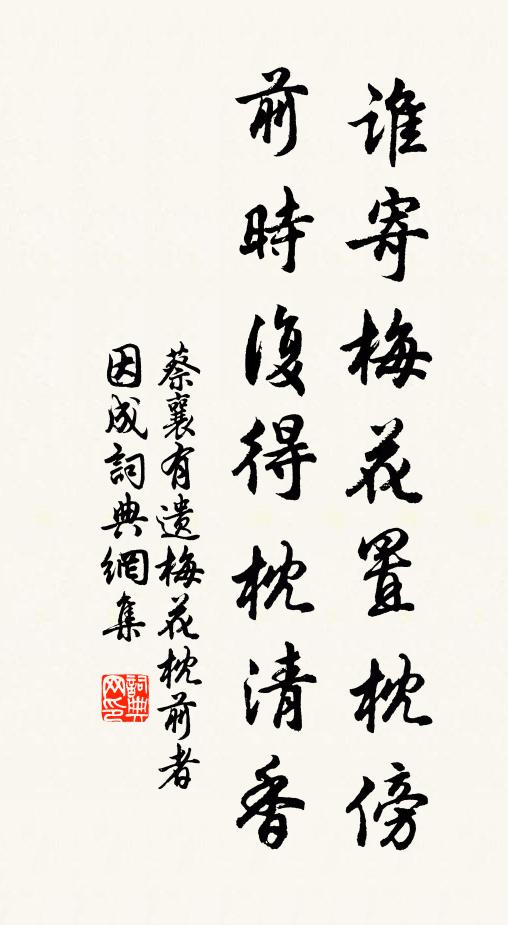 誰寄梅花置枕傍
前時復得枕清香
蔡襄有遺梅花枕前者
因成詞典網集
詞典
网印